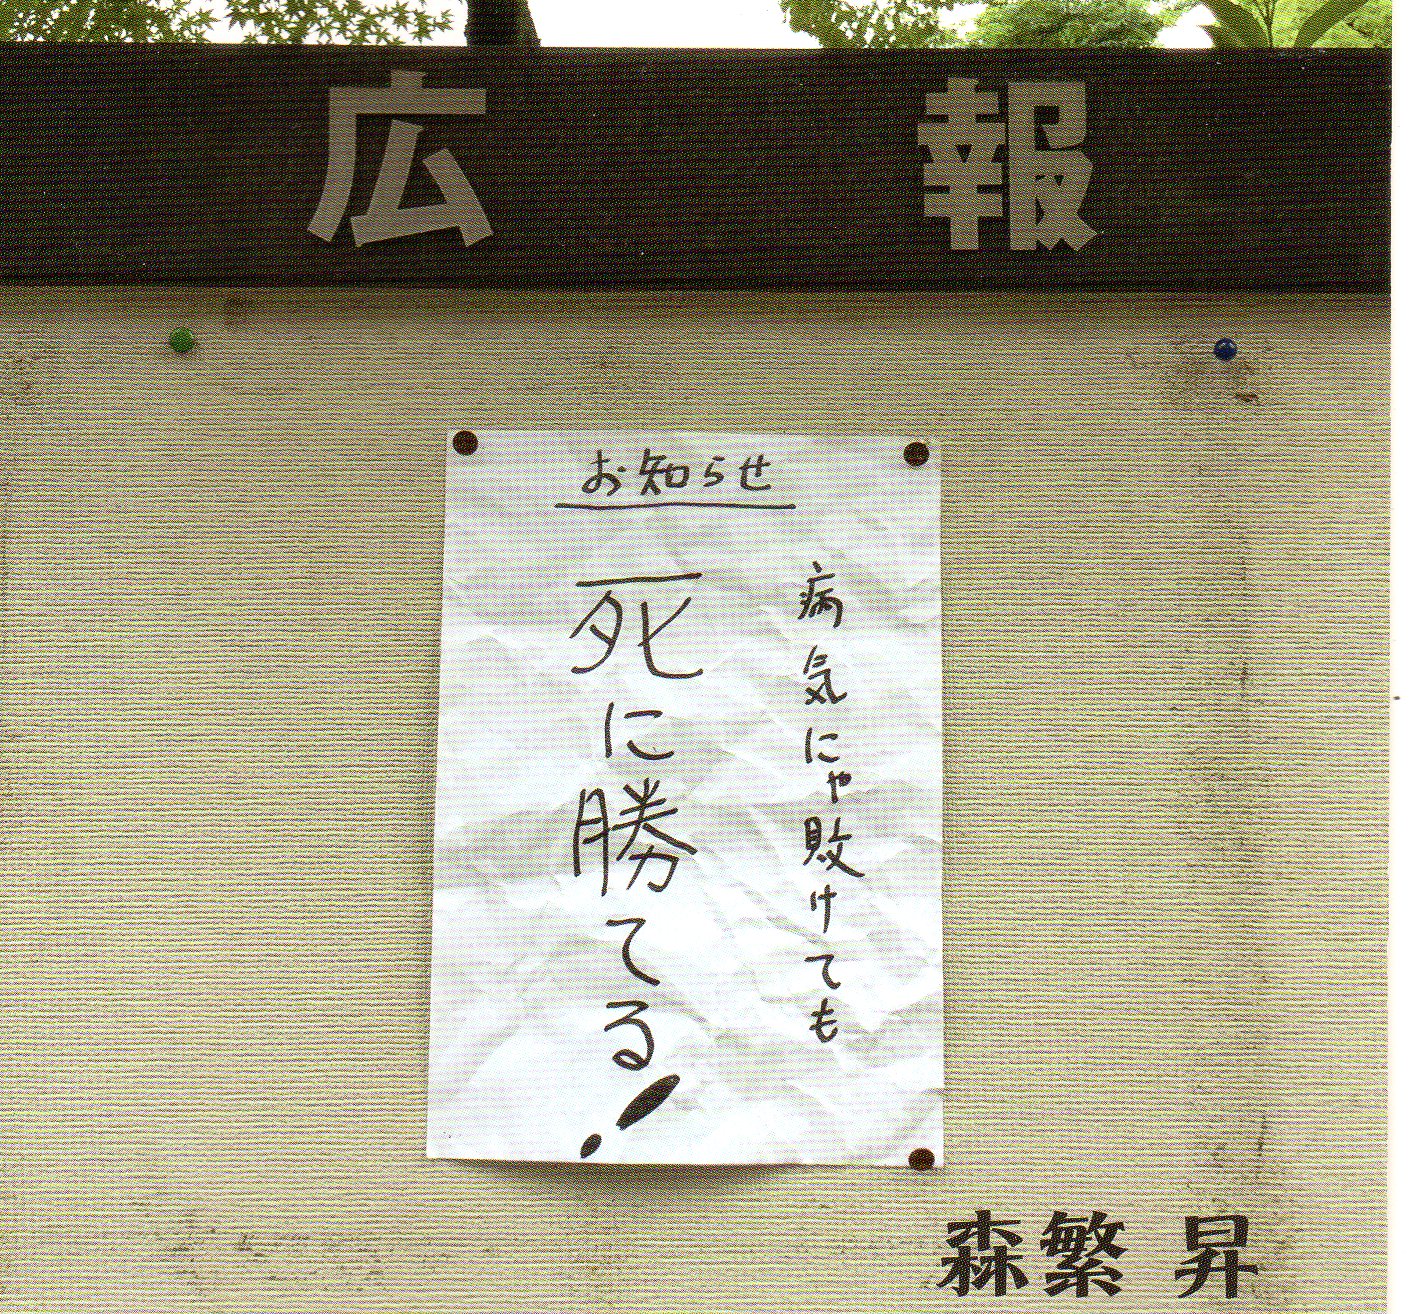 広報
お知らせ
病気にゃ敗けても
死に勝てる！
森繁 昇